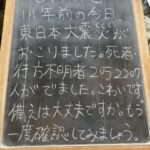 11年前の今日
東日本大震災が
おこりました。死者・
行方不明者2万2200の
人がでました。こわいです
備えは大丈夫ですか。もう
一度確認してみましょう。